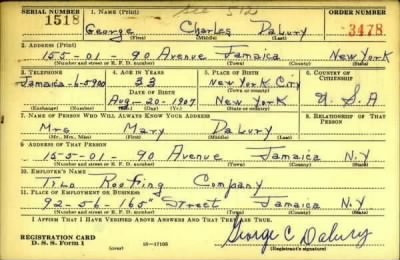 SERIAL NUMBER 1. NAME (Print) ORDER NUMBER
1518 George Charles Dabury 3478
(First) (Middle) (Last)
2. ADDRESS (Print)
155-01-90 Avenue Jamaica New York
(Number and street or R. F. D. number) (Town) (County) (State)
3. TELEPHONE 4. AGE IN YEARS 5. PLACE OF BIRTH 6. COUNTRY OF CITIZENSHIP
Jamaica-6-5900 33 New York City
DATE OF BIRTH (Town or county)
Aug-20-1907 New York U.S.A
(Exchange) (Number) (Mo.) (Day) (Yr.) (State or country)
7. NAME OF PERSON WHO WILL ALWAYS KNOW YOUR ADDRESS 8. RELATIONSHIP OF THAT PERSON
Mrs Mary Dabury
(Mr., Mrs., Miss) (First) (Middle) (Last)
9. ADDRESS OF THAT PERSON
155-01-90 Avenue Jamaica N.Y
(Number and street or R. F. D. number) (Town) (County) (State)
10. EMPLOYER'S NAME
Roofing Company
11. PLACE OF EMPLOYMENT OR BUSINESS
92-56-165" Street Jamaica N.Y
(Number and street or R. F. D. number) (Town) (County) (State)
I AFFIRM THAT I HAVE VERIFIED ABOVE ANSWERS AND THAT THEY ARE TRUE.
REGISTRATION CARD
D. S. S. Form 1 (over) 16-17105 George C Dabury
(Registrant's signature)